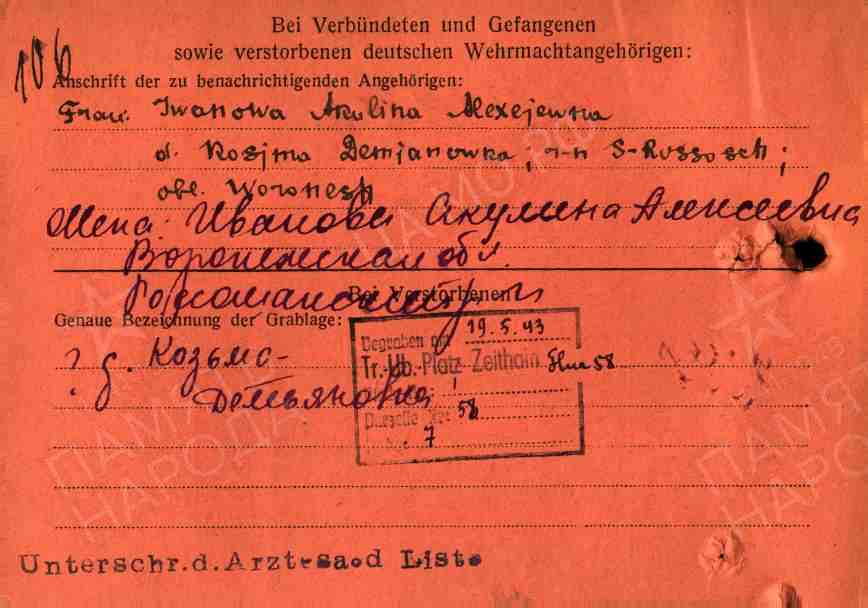 Bei Verbündeten und Gefangenen
sowie verstorbenen deutschen Wehrmachtangehörigen:
106
Anschrift der zu benachrichtigenden Angehörigen:
Frau. Iwanowa Akulina Alexejewna
d. Kosjma Demjanowka; S-Rossosch;
obl. Woronesh
Жена: Иванова Акулина Алексеевна
Воронежская обл.
Bei Verstorbenen
Genaue Bezeichnung der Grablage:
Begraben am 19.5.43
Tr.-Üb.-Platz Zeithain Flur 58
Parzelle Nr. 58
7
? д. Козьмо-
Демьяновка
Unterschr.d.Arztes a.d Liste
ПАМЯТЬ
НАРОДА
ПАМЯТЬ
НАРОДА